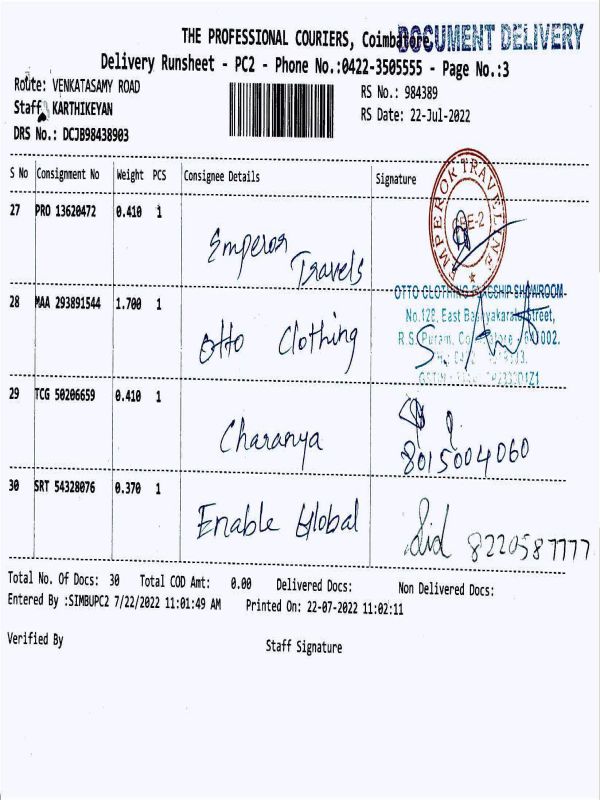 THE PROFESSIONAL COURIERS, Coimbatore
DOCUMENT DELIVERY
Delivery Runsheet - PC2 - Phone No.:0422-3505555 - Page No.:3
Route: VENKATASAMY ROAD
RS No.: 984389
Staff: KARTHIKEYAN
RS Date: 22-Jul-2022
DRS No.: DCJB98438903
S No Consignment No Weight PCS Consignee Details Signature
27 PRO 13620472 0.410 1
Emperor Travels
EMPEROR TRAVELINE
28 MAA 293891544 1.700 1
Otto Clothing
OTTO CLOTHING FLAGSHIP SHOWROOM
No.128, East
Street,
R.S. Puram,
29 TCG 50206659 0.410 1
Charanya
8015004060
30 SRT 54328076 0.370 1
Enable Global
8220587777
Total No. Of Docs: 30 Total COD Amt: 0.00 Delivered Docs: Non Delivered Docs:
Entered By :SIMBUPC2 7/22/2022 11:01:49 AM Printed On: 22-07-2022 11:02:11
Verified By
Staff Signature